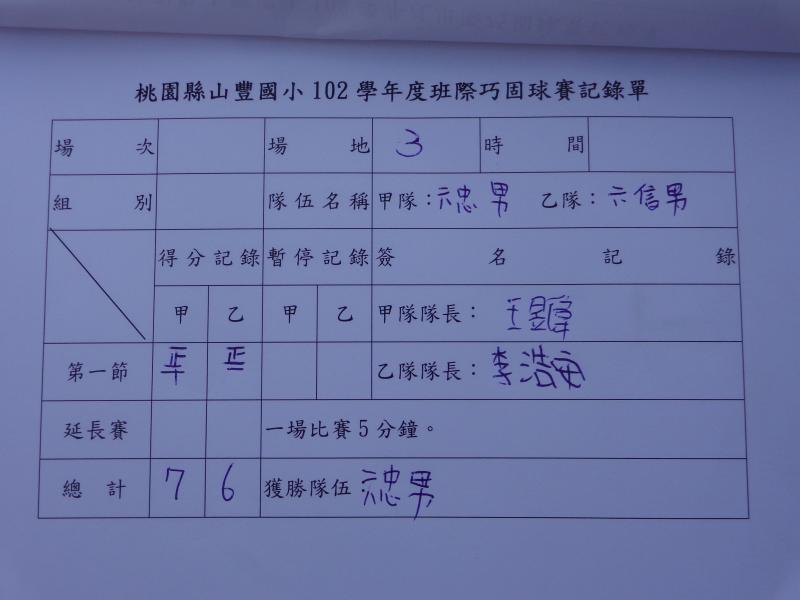 桃園縣山豐國小102學年度班際巧固球賽記錄單
場次 場地 3 時間
組別 隊伍名稱 甲隊：六忠男 乙隊：六信男
得分記錄 暫停記錄 簽名記錄
甲 乙 甲 乙 甲隊隊長：王昱
第一節 乙隊隊長：李浩安
延長賽 一場比賽5分鐘。
總計 7 6 獲勝隊伍 六忠男